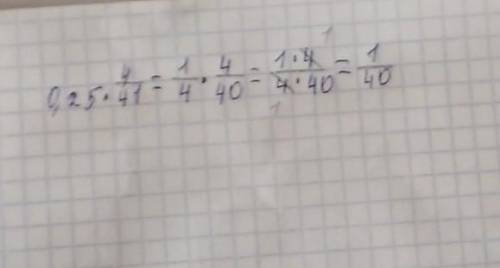 0,25 · 4/41 = 1/4 · 4/40 = 1·4/4·40 = 1/40